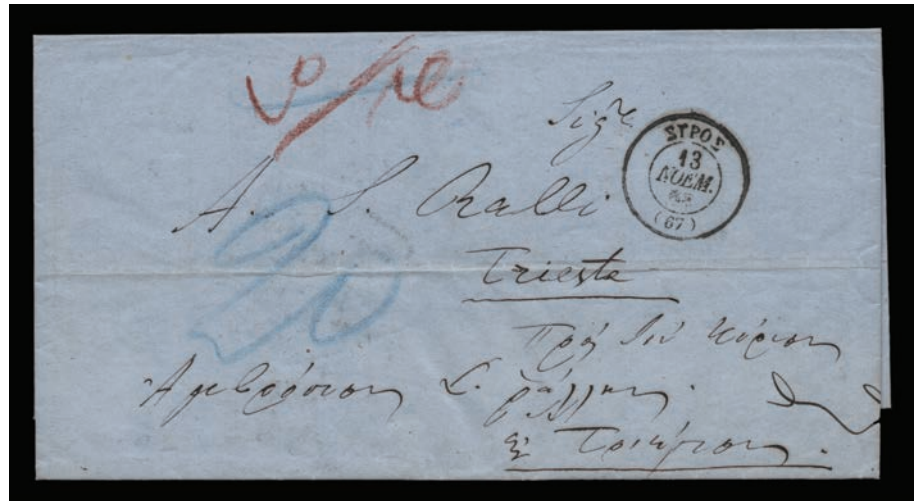 Sigre
ΣΥΡΟΣ
13
ΝΟΕΜ.
(67)
A. S. Ralli
Trieste
20
Πρὸς τὸν κύριον
Ἀμβρόσιον Σ. Ράλλην.
εἰς Τριέστιον.